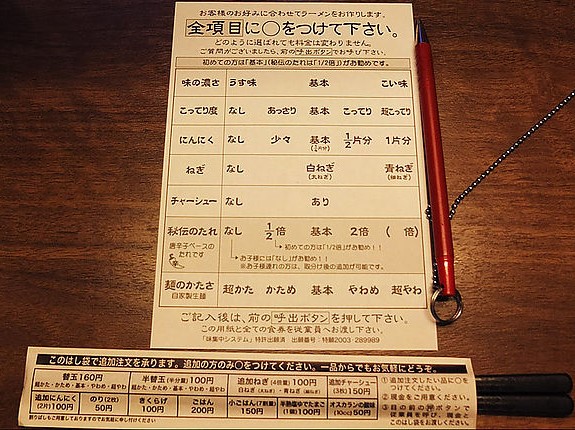 お客様のお好みに合わせてラーメンをお作りします。
全項目に○をつけて下さい。
どのように選ばれても料金は変わりません。
ご質問がございましたら、前の呼出ボタンでお呼び下さい。
初めての方は「基本」(秘伝のたれは「1/2倍」)がお勧めです。
味の濃さ うす味 基本 こい味
こってり度 なし あっさり 基本 こってり 超こってり
にんにく なし 少々 基本 1/2片分 1片分
(1/4片分)
ねぎ なし 白ねぎ 青ねぎ
(太ねぎ) (細ねぎ)
チャーシュー なし あり
秘伝のたれ なし 1/2倍 基本 2倍 ( 倍)
唐辛子ベースの
たれです
初めての方は「1/2倍」がお勧め!!
お子様には「なし」がお勧め!!
※お子様連れの方は、取分け後の追加が可能です。
麺のかたさ 超かた かため 基本 やわめ 超やわ
自家製生麺
ご記入後は、前の呼出ボタンを押して下さい。
この用紙と全ての食券を従業員へお渡し下さい。
「味集中システム」特許出願済 出願番号:特願2003-289989
このはし袋で追加注文を承ります。追加の方のみ○をつけて下さい。一品からでもお気軽にどうぞ。
替玉160円 半替玉(半分量)100円 追加ねぎ(4倍量)100円 追加チャーシュー
超かた・かため・基本・やわめ・超やわ 超かた・かため・基本・やわめ・超やわ 白ねぎ(太ねぎ) 青ねぎ(細ねぎ) (3枚)150円
追加にんにく のり(2分) きくらげ ごはん 小ごはん(7割量) 半熟塩ゆでたまご オスカランの酸味
(2片)100円 50円 100円 200円 150円 (1個)100円 (10cc)50円
割りばしもご用意しておりますのでお気軽にお申し付けください
①追加注文したい品に○を
つけてください。
②現金をご用意ください。
③目の前の呼ボタンで
従業員を呼び、現金と
このはし袋をお渡しください。